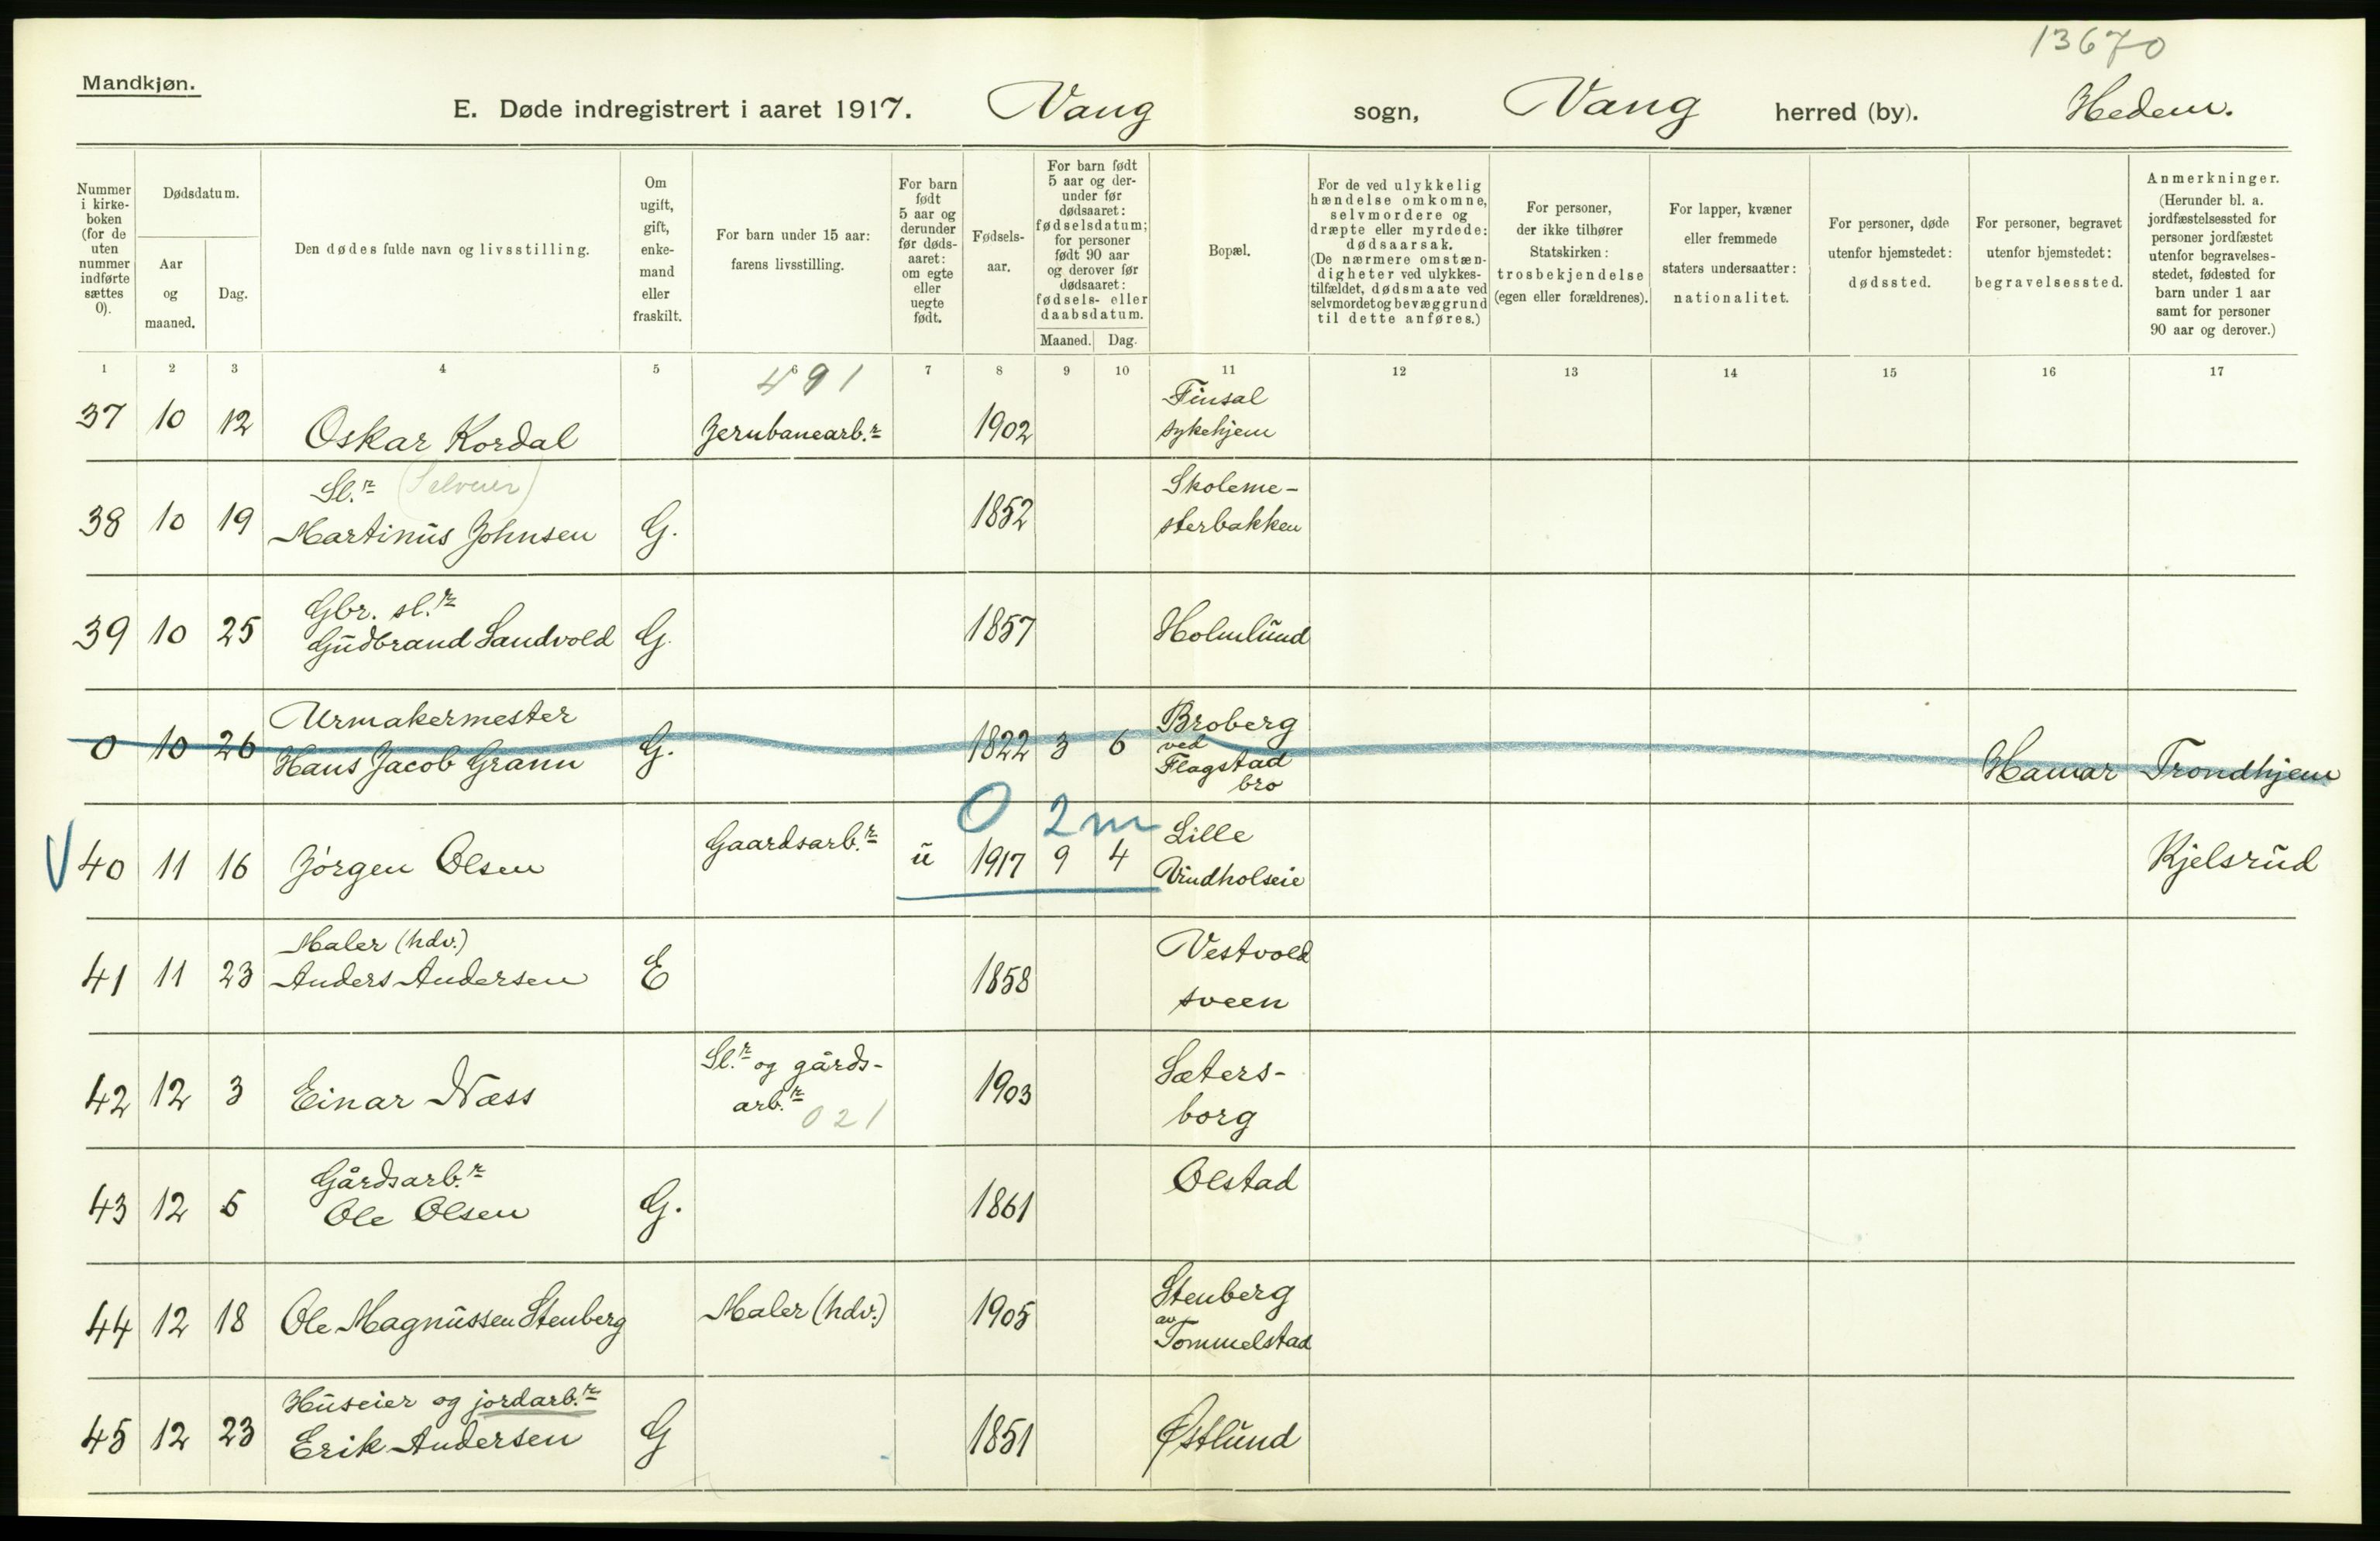 13670
Mandkjøn.
E. Døde indregistrert i aaret 1917. Vang sogn, Vang herred (by). Hedem.
Nummer i kirke-boken (for de uten nummer indførte sættes 0).
Dødsdatum.
Aar og maaned.
Dag.
Den dødes fulde navn og livsstilling.
Om ugift, gift, enke-mand eller fraskilt.
For barn under 15 aar: farens livsstilling.
For barn født 5 aar og derunder før døds-aaret: om egte eller uegte født.
Fødsels-aar.
For barn født 5 aar og der-under før dødsaaret: fødselsdatum; for personer født 90 aar og derover før dødsaaret: fødsels- eller daabsdatum.
Maaned. Dag.
Bopæl.
For de ved ulykkelig hændelse omkomne, selvmordere og dræpte eller myrdede: dødsaarsak. (De nærmere omstæn-digheter ved ulykkes-tilfældet, dødsmaate ved selvmordet og bevæggrund til dette anføres.)
For personer, der ikke tilhører Statskirken: trosbekjendelse (egen eller forældrenes).
For lapper, kvæner eller fremmede staters undersaatter: nationalitet.
For personer, døde utenfor hjemstedet: dødssted.
For personer, begravet utenfor hjemstedet: begravelsessted.
Anmerkninger. (Herunder bl. a. jordfæstelsessted for personer jordfæstet utenfor begravelses-stedet, fødested for barn under 1 aar samt for personer 90 aar og derover.)
1 2 3 4 5 6 7 8 9 10 11 12 13 14 15 16 17
491
37 10 12 Oskar Kordal Jernbanearb.r 1902 Finsal
sykehjem
Sl.r (Selveier) Skoleme-
38 10 19 Martinus Johnsen G. 1852 sterbakken
Gbr. sl.r
39 10 25 Gudbrand Sandvold G. 1857 Holmlund
Urmakermester Broberg
0 10 26 Hans Jacob Grann G. 1822 3 6 ved Flagstad bro Hamar Trondhjem
0 2 m
V 40 11 16 Jørgen Olsen Gaardsarb.r u 1917 9 4 Lille
Vindholseie Kjelsrud
Maler (hdv.) Vestvold
41 11 23 Anders Andersen E 1858 sveen
Sl.r og gårds- Sæters-
42 12 3 Einar Næss arb.r 1903 borg
021
Gårdsarb.r Olstad
43 12 5 Ole Olsen G. 1861
44 12 18 Ole Magnussen Stenberg Maler (hdv.) 1905 Stenberg
av Tommelstad
Huseier og jordarb.r
45 12 23 Erik Andersen G 1851 Østlund